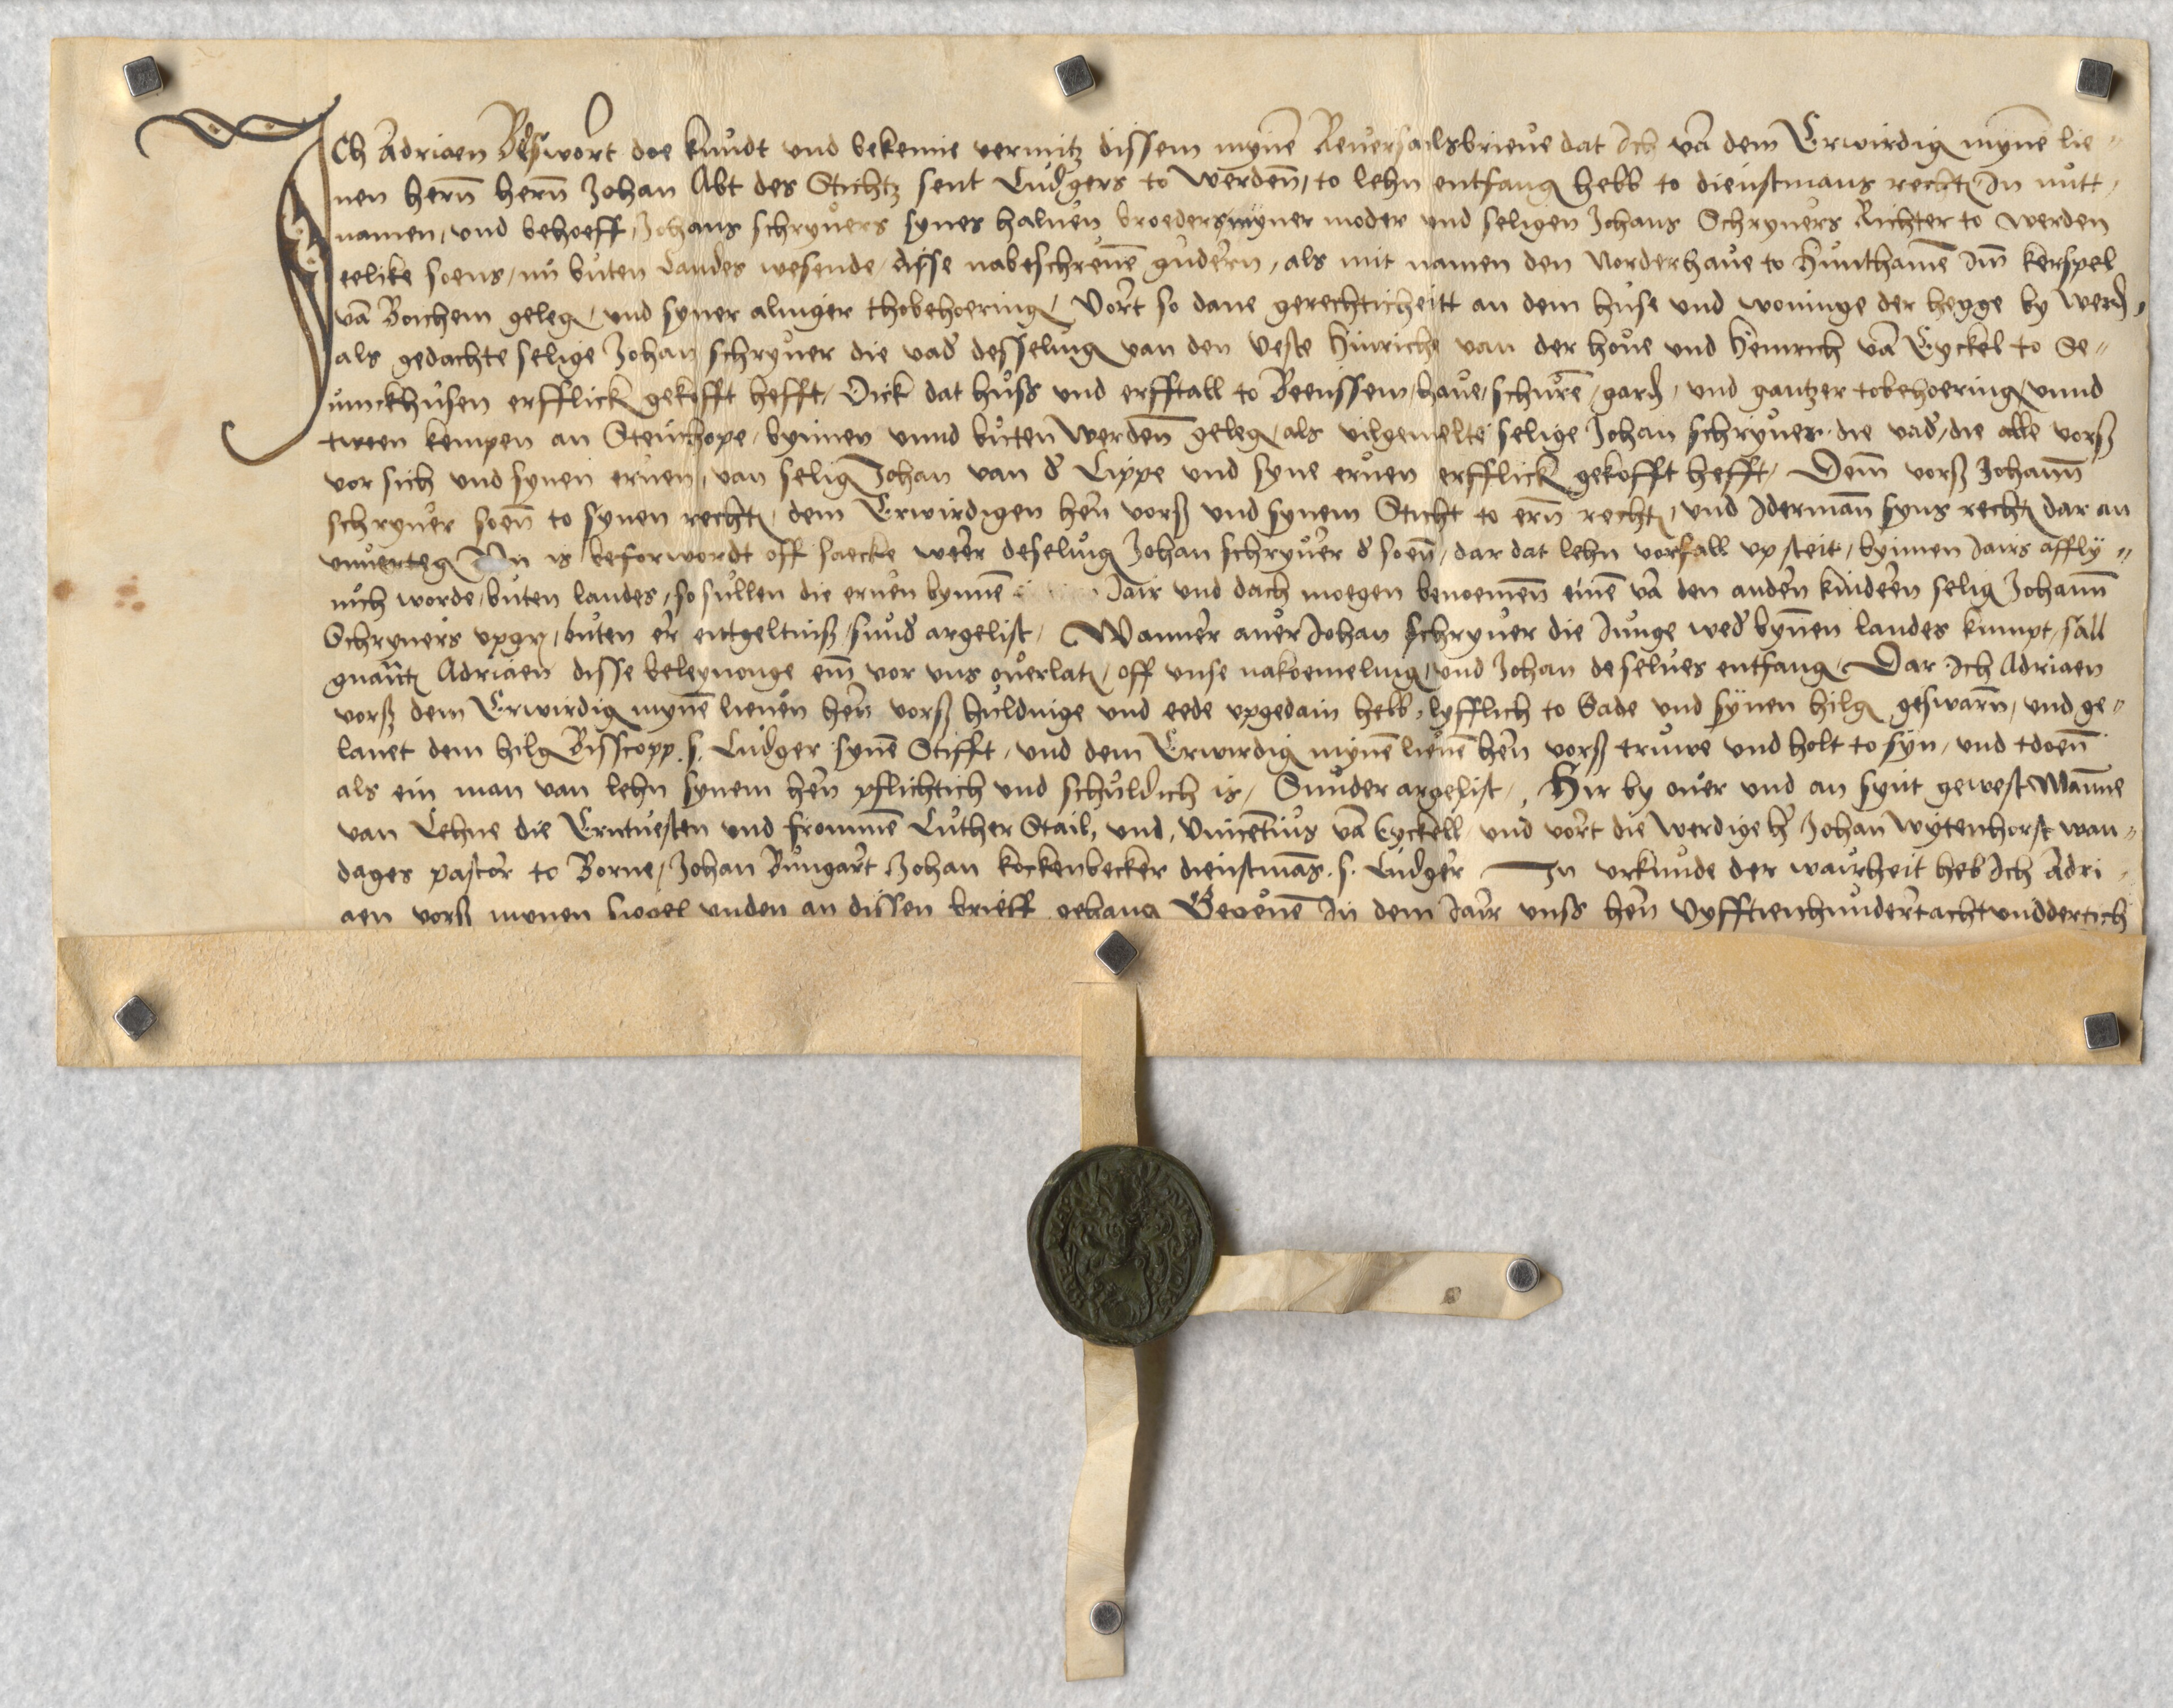 Ich Adriaen Beswort doe kundt und bekenne vermitz dissem mynē Reversailsbrieve dat Ich vā dem Erwirdig mynē lie-
ven hern̄ hern̄ Johan Abt des Stichtz sent Ludgers to Werden̄, to lehn entfang hebb to dienstmans recht In nutt,
namen, und behoeff, Johans schryvers synes halven broeders myner moder und seligen Johans Schryvers Richter to werden
eelike soens, nu buten Landes wesende, disse nabeschrevē gudern, als mit namen den Norderhave to Hunthamē Im̄ kerspel
vā Borchem geleg, und syner alinger thobehoering, Vort so dane gerechticheitt an dem huse und woninge der hegge by Werd,
als gedachte selige Johan schryver die vad' desselving van den Veste Hinrich van der hove und Heinrich vā Eyckel to Se-
vinckhusen erfflick gekofft hefft, Oick dat huss und erfftall to Beenssem, have, schurē, gard, und gantzer tobehoering, vnnd
tween kempen an Stenichope, bynnen vnnd buten Werden̄ geleg, als vilgemelte selige Johan schryver die vad', die alle vorß
vor sich und synen erven, van selig Johan van d' Lippe und syne erven erfflick gekofft hefft, Dem̄ vorß Johann̄
schryver soen̄ to synen recht, dem Erwirdigen hern̄ vorß und synem Sticht to ern̄ recht, und Iderman̄ syns recht dar an
unverteg is beforwordt off saecke weer deselvig Johan schryver d' soen̄, dar dat lehn vorfall up steit, bynnen Jairs affly-
vich worde, buten landes, so sullen die erven bynnē Jair und dach moegen benoemen̄ einē vā den andern kindern selig Johann̄
Schryvers vpgn, buten er entgeltniß, sund' argelist, Wanner aver Johan schryver die Junge wed' bynnen landes kumpt, sall
gnant Adriaen disse beleynonge em̄ vor uns overlat, off unse nakoemeling, und Johan deselves entfang, Dar Ich Adriaen
vorß dem Erwirdig mynē lieven hern̄ vorß huldinge und eede upgedain hebb, lyfflich to Gade und synen hilg geswarn̄, und ge-
lavet dem hilg Bisscopp. s. Ludger synē Stifft, und dem Erwirdig mynē lievē hern̄ vorß truwe und holt to syn, und tdoen̄
als ein man van lehn synem hern̄ pflichtich und schuldich is, Sunder argelist, Hir by over und an synt gewest Manne
van Lehne die Erntvesten und frommē Luther Stail, und, Vincentius vā Eyckell, und vort die werdige h' Johan wytenhorst wan-
dages pastor to Borne, Johan Bungart Johan kockenbecker dienstmās. s. Ludger In urkunde der wairheit heb Ich Adri-
aen vorß mynen Siegel unden an dissen brieff gehang Gegevē In dem Jair unss hern̄ Vyfftienhundertachtunddertich